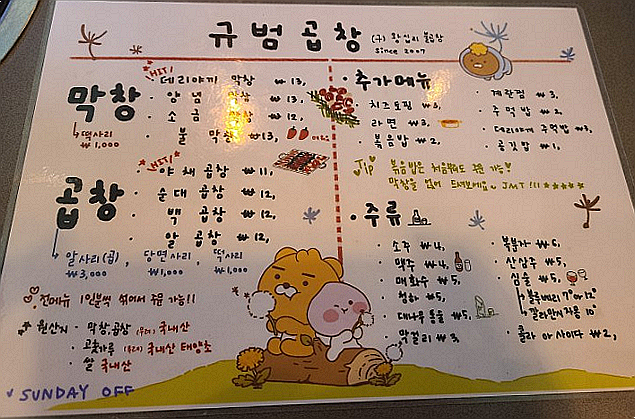 규범곱창 (구) 황십리 불곱창
since 2007
막창
떡사리
₩1,000
HIT!
데리야끼 막창 ₩13,
양념 막창 ₩13,
소금 막창 ₩12,
불 막창 ₩13,
곱창
HIT!
야채 곱창 ₩11,
순대 곱창 ₩12,
백 곱창 ₩12,
알 곱창 ₩12,
알사리(곱), 당면사리, 떡사리
₩3,000 ₩1,000 ₩1,000
전메뉴 1인분씩 섞어서 주문 가능!!
원산지 · 막창,곱창 (우리) 국내산
고춧가루 (우리) 국내산 태양초
쌀 국내산
SUNDAY OFF
· 추가메뉴
치즈토핑 ₩3,
라면 ₩3,
볶음밥 ₩2,
계란찜 ₩3,
주먹밥 ₩2,
데리야끼 주먹밥 ₩3,
공깃밥 ₩1,
TIP 볶음밥은 처음부터 주문 가능
막창을 넣어 드셔보세요 JMT!!!
· 주류
소주 ₩4,
맥주 ₩4,
매화수 ₩5,
청하 ₩5,
대나무통술 ₩5,
막걸리 ₩3,
복분자 ₩6,
산삼주 ₩5,
심술 ₩5,
7° or 12°
10°
콜라 아 사이다 ₩2,